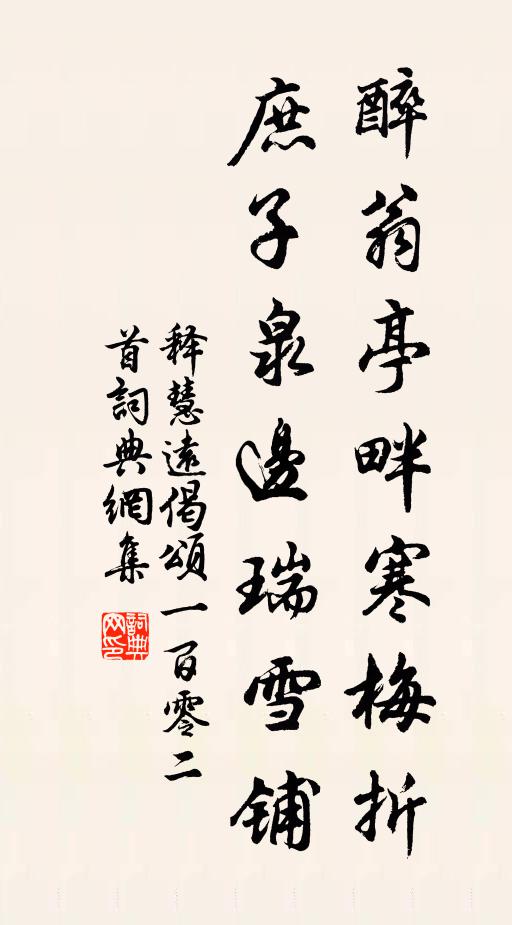 醉翁亭畔寒梅折
庶子泉邊瑞雪铺
释慧遠偈頌一百零二
首詞典網集
詞典
网印